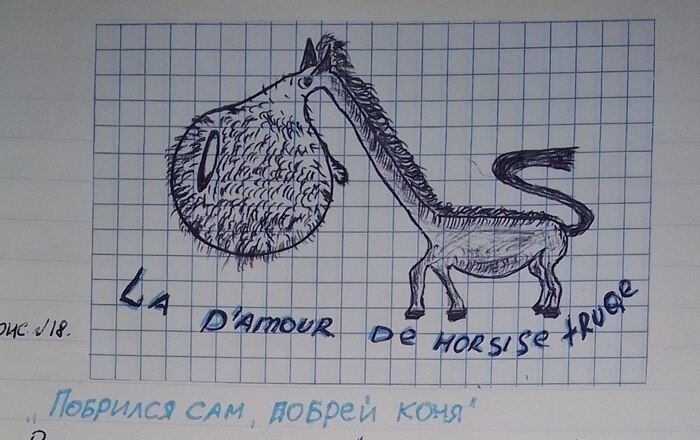 LA D'AMOUR DE HORSISE TRUQE
рис. №18.
„Побрился сам, побрей коня"